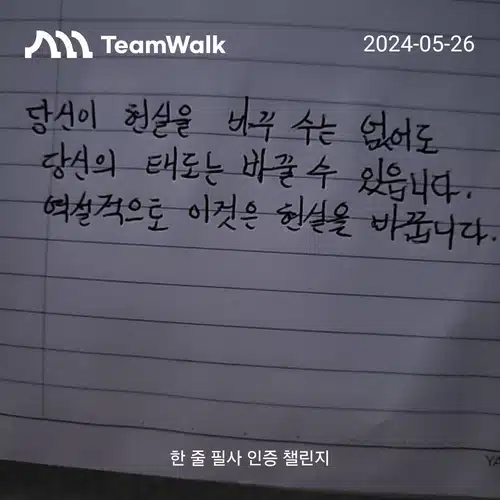 TeamWalk
2024-05-26
당신이 현실을 바꾸 수는 없어도
당신의 태도는 바꿀 수 있읍니다.
역설적으로 이것은 현실을 바꿉니다.
한 줄 필사 인증 챌린지
YA